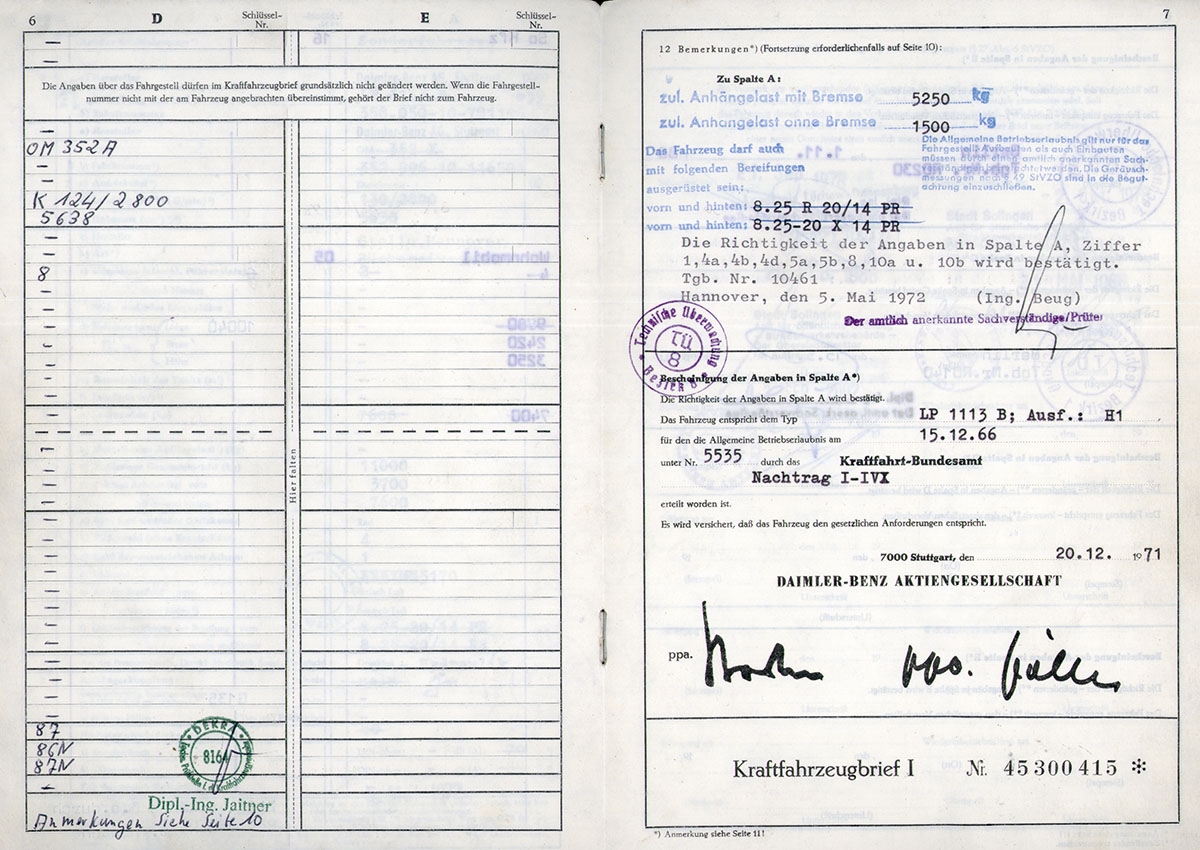 6
D
Schlüssel-
Nr.
E
Schlüssel-
Nr.
Die Angaben über das Fahrgestell dürfen im Kraftfahrzeugbrief grundsätzlich nicht geändert werden. Wenn die Fahrgestell-
nummer nicht mit der am Fahrzeug angebrachten übereinstimmt, gehört der Brief nicht zum Fahrzeug.
OM 352 A
K 124/2800
5638
8
Hier falten
87
86N
87N
DEKRA
8164
Dipl.-Ing. Jaitner
Anmerkungen siehe Seite 10
7
12 Bemerkungen*) (Fortsetzung erforderlichenfalls auf Seite 10):
Zu Spalte A:
zul. Anhängelast mit Bremse 5250 kg
zul. Anhängelast ohne Bremse 1500 kg
Das Fahrzeug darf auch
mit folgenden Bereifungen
ausgerüstet sein:
Die Allgemeine Betriebserlaubnis gilt nur für das
Fahrgestell. Aufbauten als auch Einbauten
müssen durch einen amtlich anerkannten Sach-
verständigen begutachtet werden. Die Geräusch-
messungen nach § 49 StVZO sind in die Begut-
achtung einzuschließen.
vorn und hinten: 8.25 R 20/14 PR
vorn und hinten: 8.25-20 X 14 PR
Die Richtigkeit der Angaben in Spalte A, Ziffer
1,4a,4b,4d,5a,5b,8,10a u. 10b wird bestätigt.
Tgb. Nr. 10461
Hannover, den 5. Mai 1972 (Ing. Beug)
Der amtlich anerkannte Sachverständige/Prüfer
Technische Überwachung
TÜ
8
Bezirk 8
Bescheinigung der Angaben in Spalte A*)
Die Richtigkeit der Angaben in Spalte A wird bestätigt.
Das Fahrzeug entspricht dem Typ LP 1113 B; Ausf.: H1
für den die Allgemeine Betriebserlaubnis am 15.12.66
unter Nr. 5535 durch das Kraftfahrt-Bundesamt
Nachtrag I-IVX
erteilt worden ist.
Es wird versichert, daß das Fahrzeug den gesetzlichen Anforderungen entspricht.
7000 Stuttgart, den 20.12. 1971
DAIMLER-BENZ AKTIENGESELLSCHAFT
ppa.
ppa.
Kraftfahrzeugbrief I Nr. 45300415 *
*) Anmerkung siehe Seite 11!